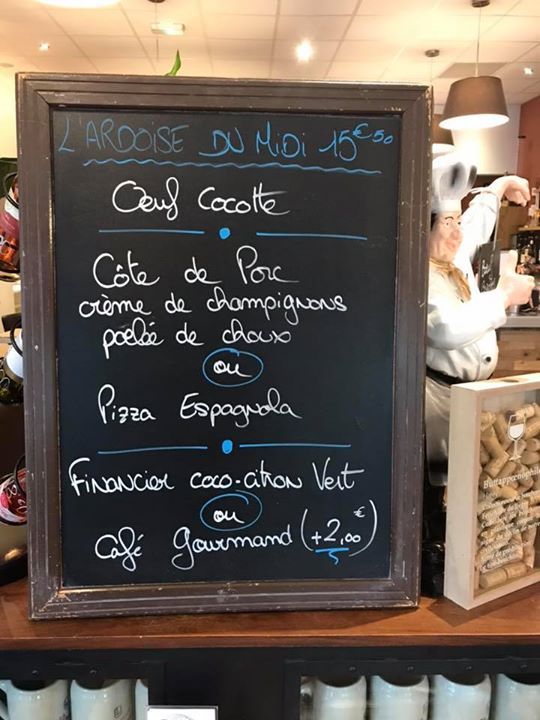 L'ARDOISE DU MiDi 15€50
Œuf Cocotte
Côte de Porc
crème de champignons
poêlée de choux
ou
Pizza Espagnola
Financier coco-citron Vert
ou
Café Gourmand (+2,00€)